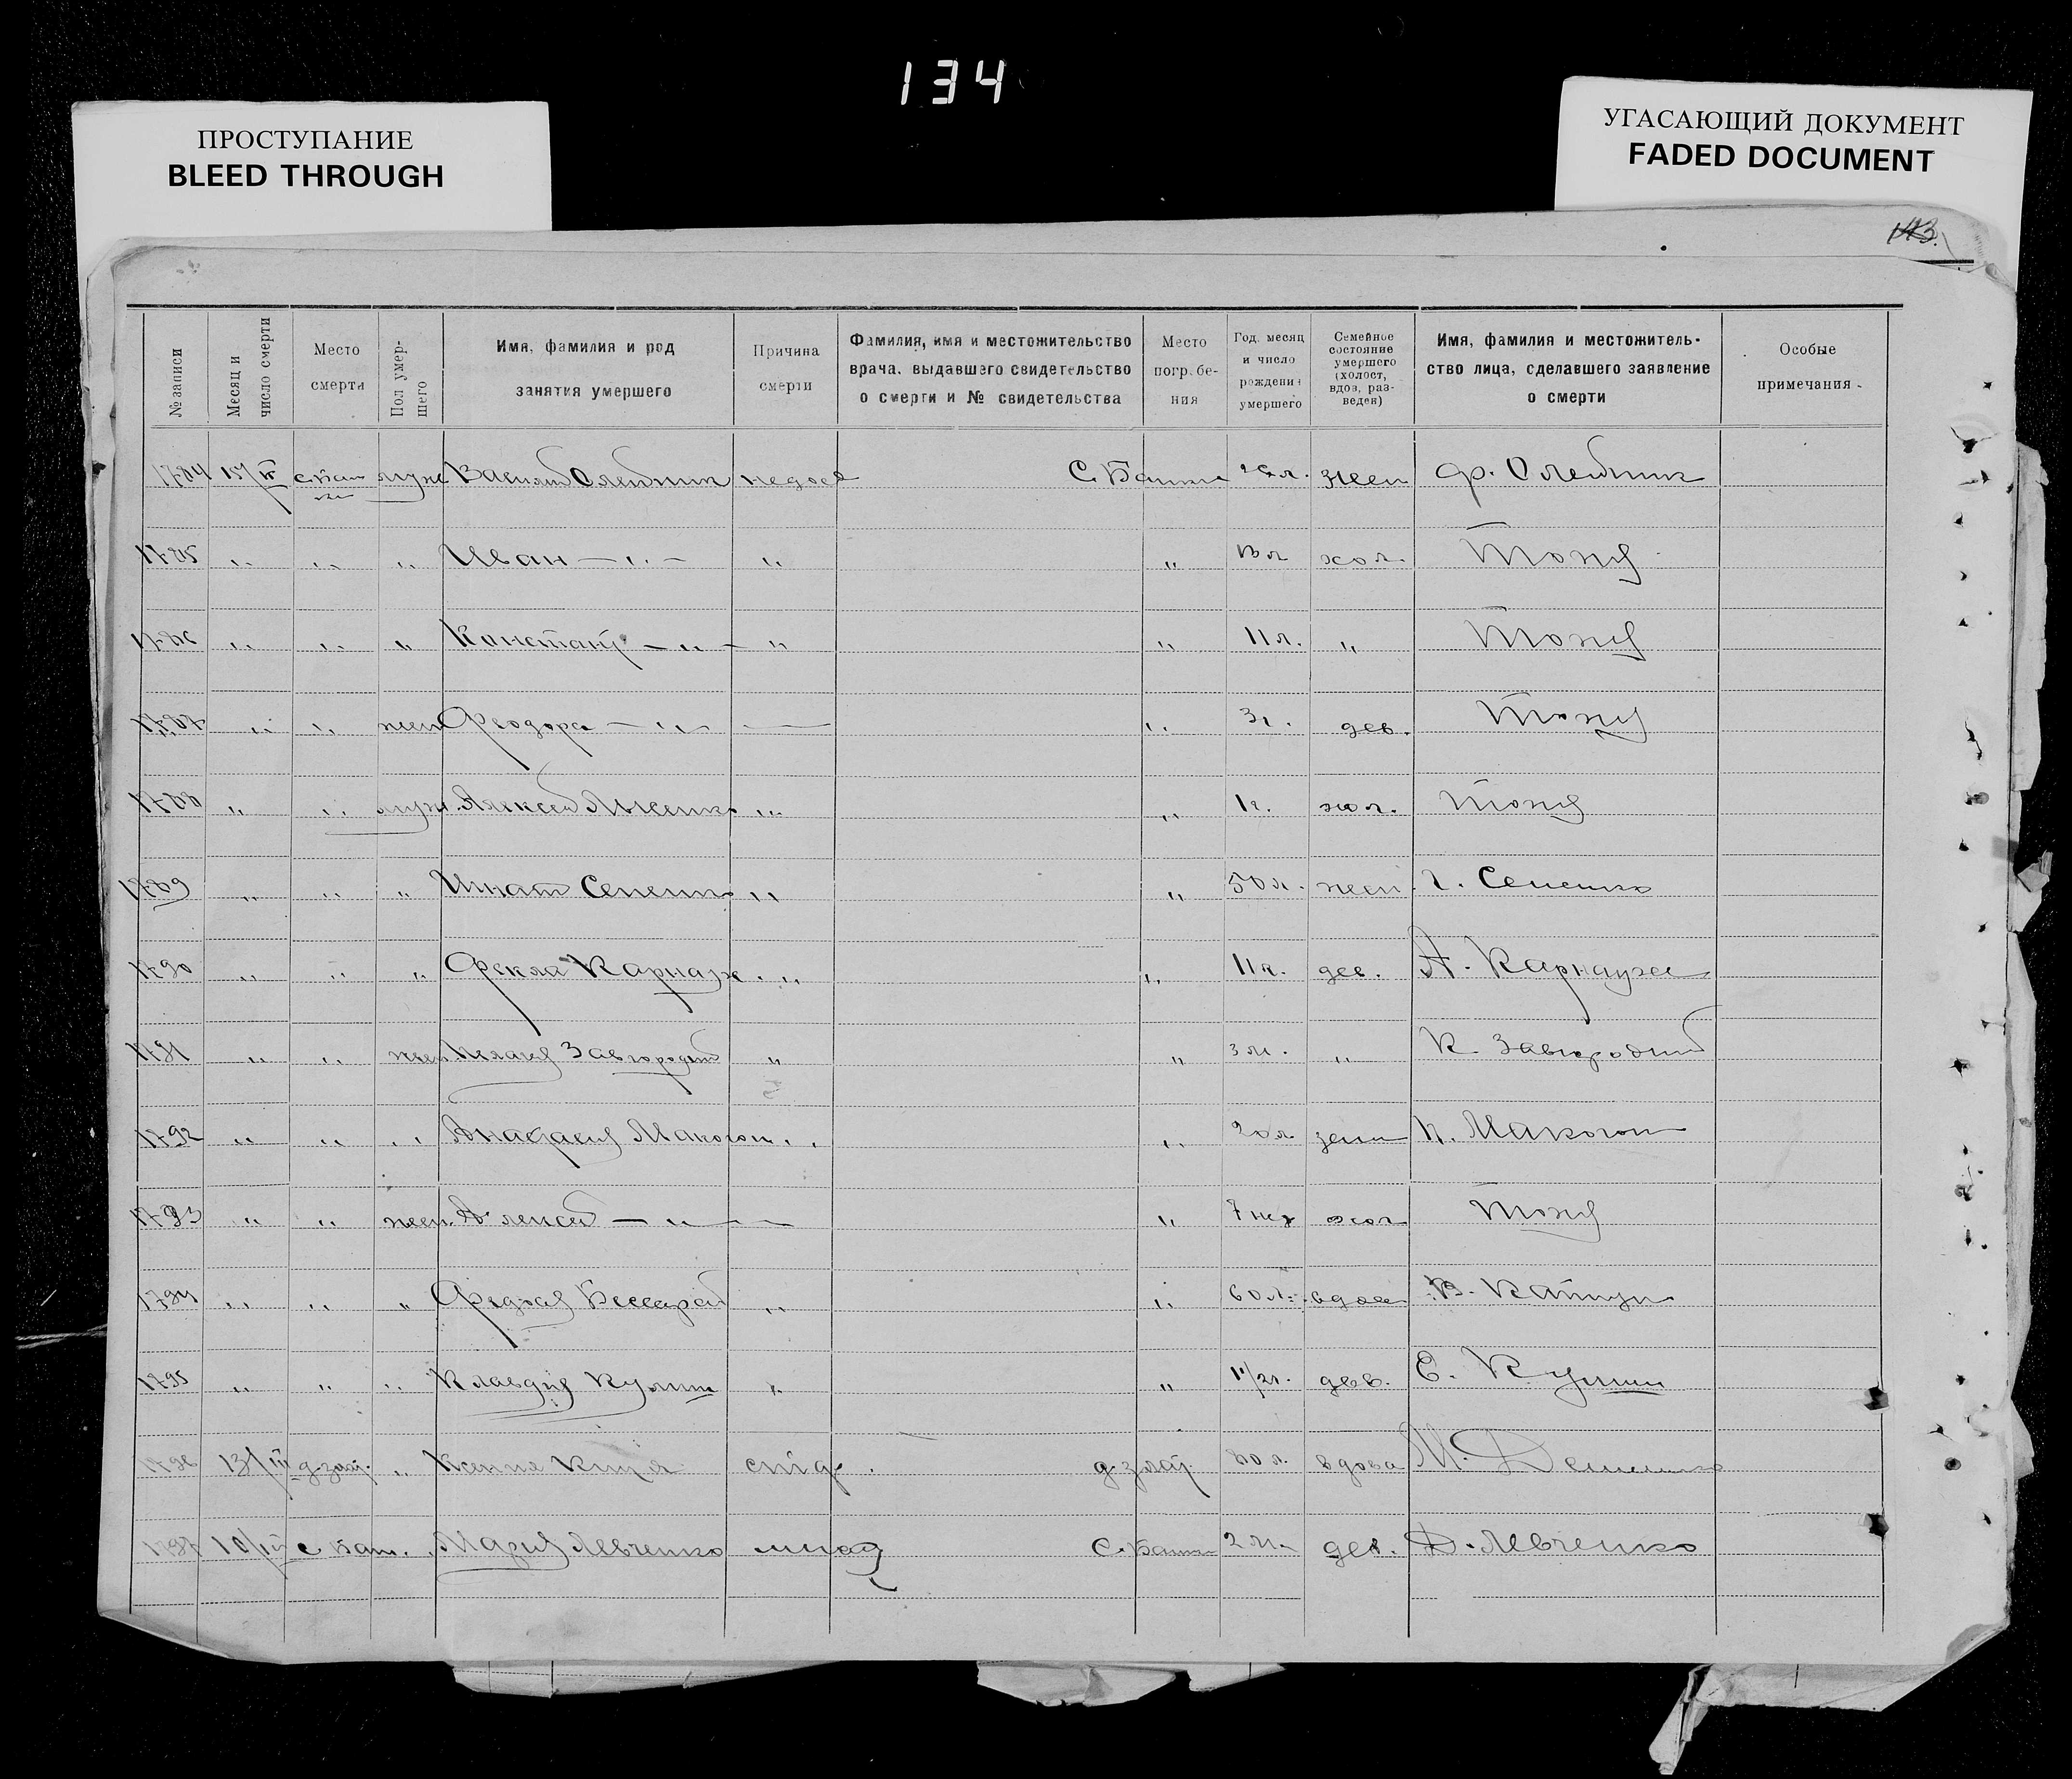 134
ПРОСТУПАНИЕ
BLEED THROUGH
УГАСАЮЩИЙ ДОКУМЕНТ
FADED DOCUMENT
143.
№ записи
Месяц и число смерти
Место смерти
Пол умершего
Имя, фамилия и род занятия умершего
Причина смерти
Фамилия, имя и местожительство врача, выдавшего свидетельство о смерти и № свидетельства
Место погребения
Год, месяц и число рождения умершего
Семейное состояние умершего (холост, вдов, разведен)
Имя, фамилия и местожительство лица, сделавшего заявление о смерти
Особые примечания
1784 муж Василий Олейник недоед С. Башт л. жен Ф. Олейник
1785 " " " Иван — " — " " 13 л хол. Тоже
1786 " " " Констант — " — " " 11 л. " Тоже
1787 " " жен Феодора — " — — " 3 г. дев. Тоже
1788 " " муж. Алексей Лысенко " " 1 г. хол. Тоже
1789 " " " Игнат " " 50 л. жен. Г.
1790 " " " Фекла Карнаух " " 11 л. дев. А. Карнауха
1791 " " жен Пелагея Завгородний " " 3 м. " К. Завгородний
1792 " " " Анастасия Макогон " " 20 л жен П. Макогон
1793 " " жен. Алексей — " — — " 7 нед хол Тоже
1794 " " " Бессараб " " 60 л. вдова В.
1795 " " " Клавдия Кулиш " " 1 1/2 г. дев. Е. Кулиш
1796 13/III " Ксения 80 л. вдова М.
1797 10/III с. Башт. " Мария Левченко С. Башт 2 м. дев. Д. Левченко